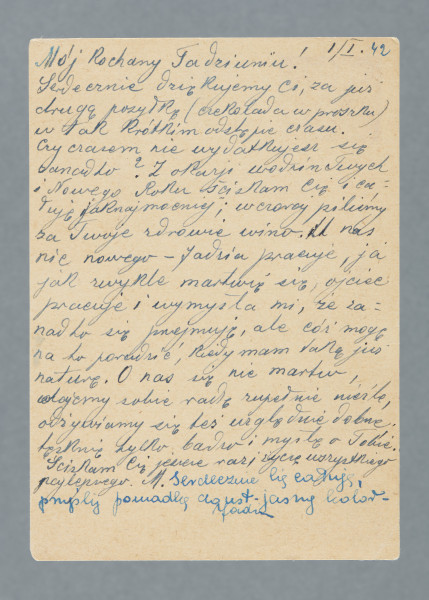 Mój Kochany Tadziuniu! 1/I. 42
Serdecznie dziękujemy Ci, za już
drugą posyłkę (czekolada w proszku)
w tak krótkim odstępie czasu.
Czy czasem nie wydatkujesz się
zanadto? Z okazji urodzin Twych
i Nowego Roku ściskam Cię i ca-
łuję jaknajmocniej; wczoraj piliśmy
za Twoje zdrowie wino. U nas
nic nowego – Jadzia pracuje, ja
jak zwykle martwię się, ojciec
pracuje i wymyśla mi, że za-
nadto się przejmuję, ale cóż mogę
na to poradzić, kiedy mam taką już
naturę. O nas się nie martw,
dajemy sobie radę zupełnie nieźle,
odżywiamy się też względnie dobrze,
tęsknię tylko bardzo i myślę o Tobie.
Ściskam Cię jeszcze raz i życzę wszystkiego
najlepszego. M. Serdecznie Cię całuję,
przyślij pomadkę do ust – jasny kolor –
Jadzia